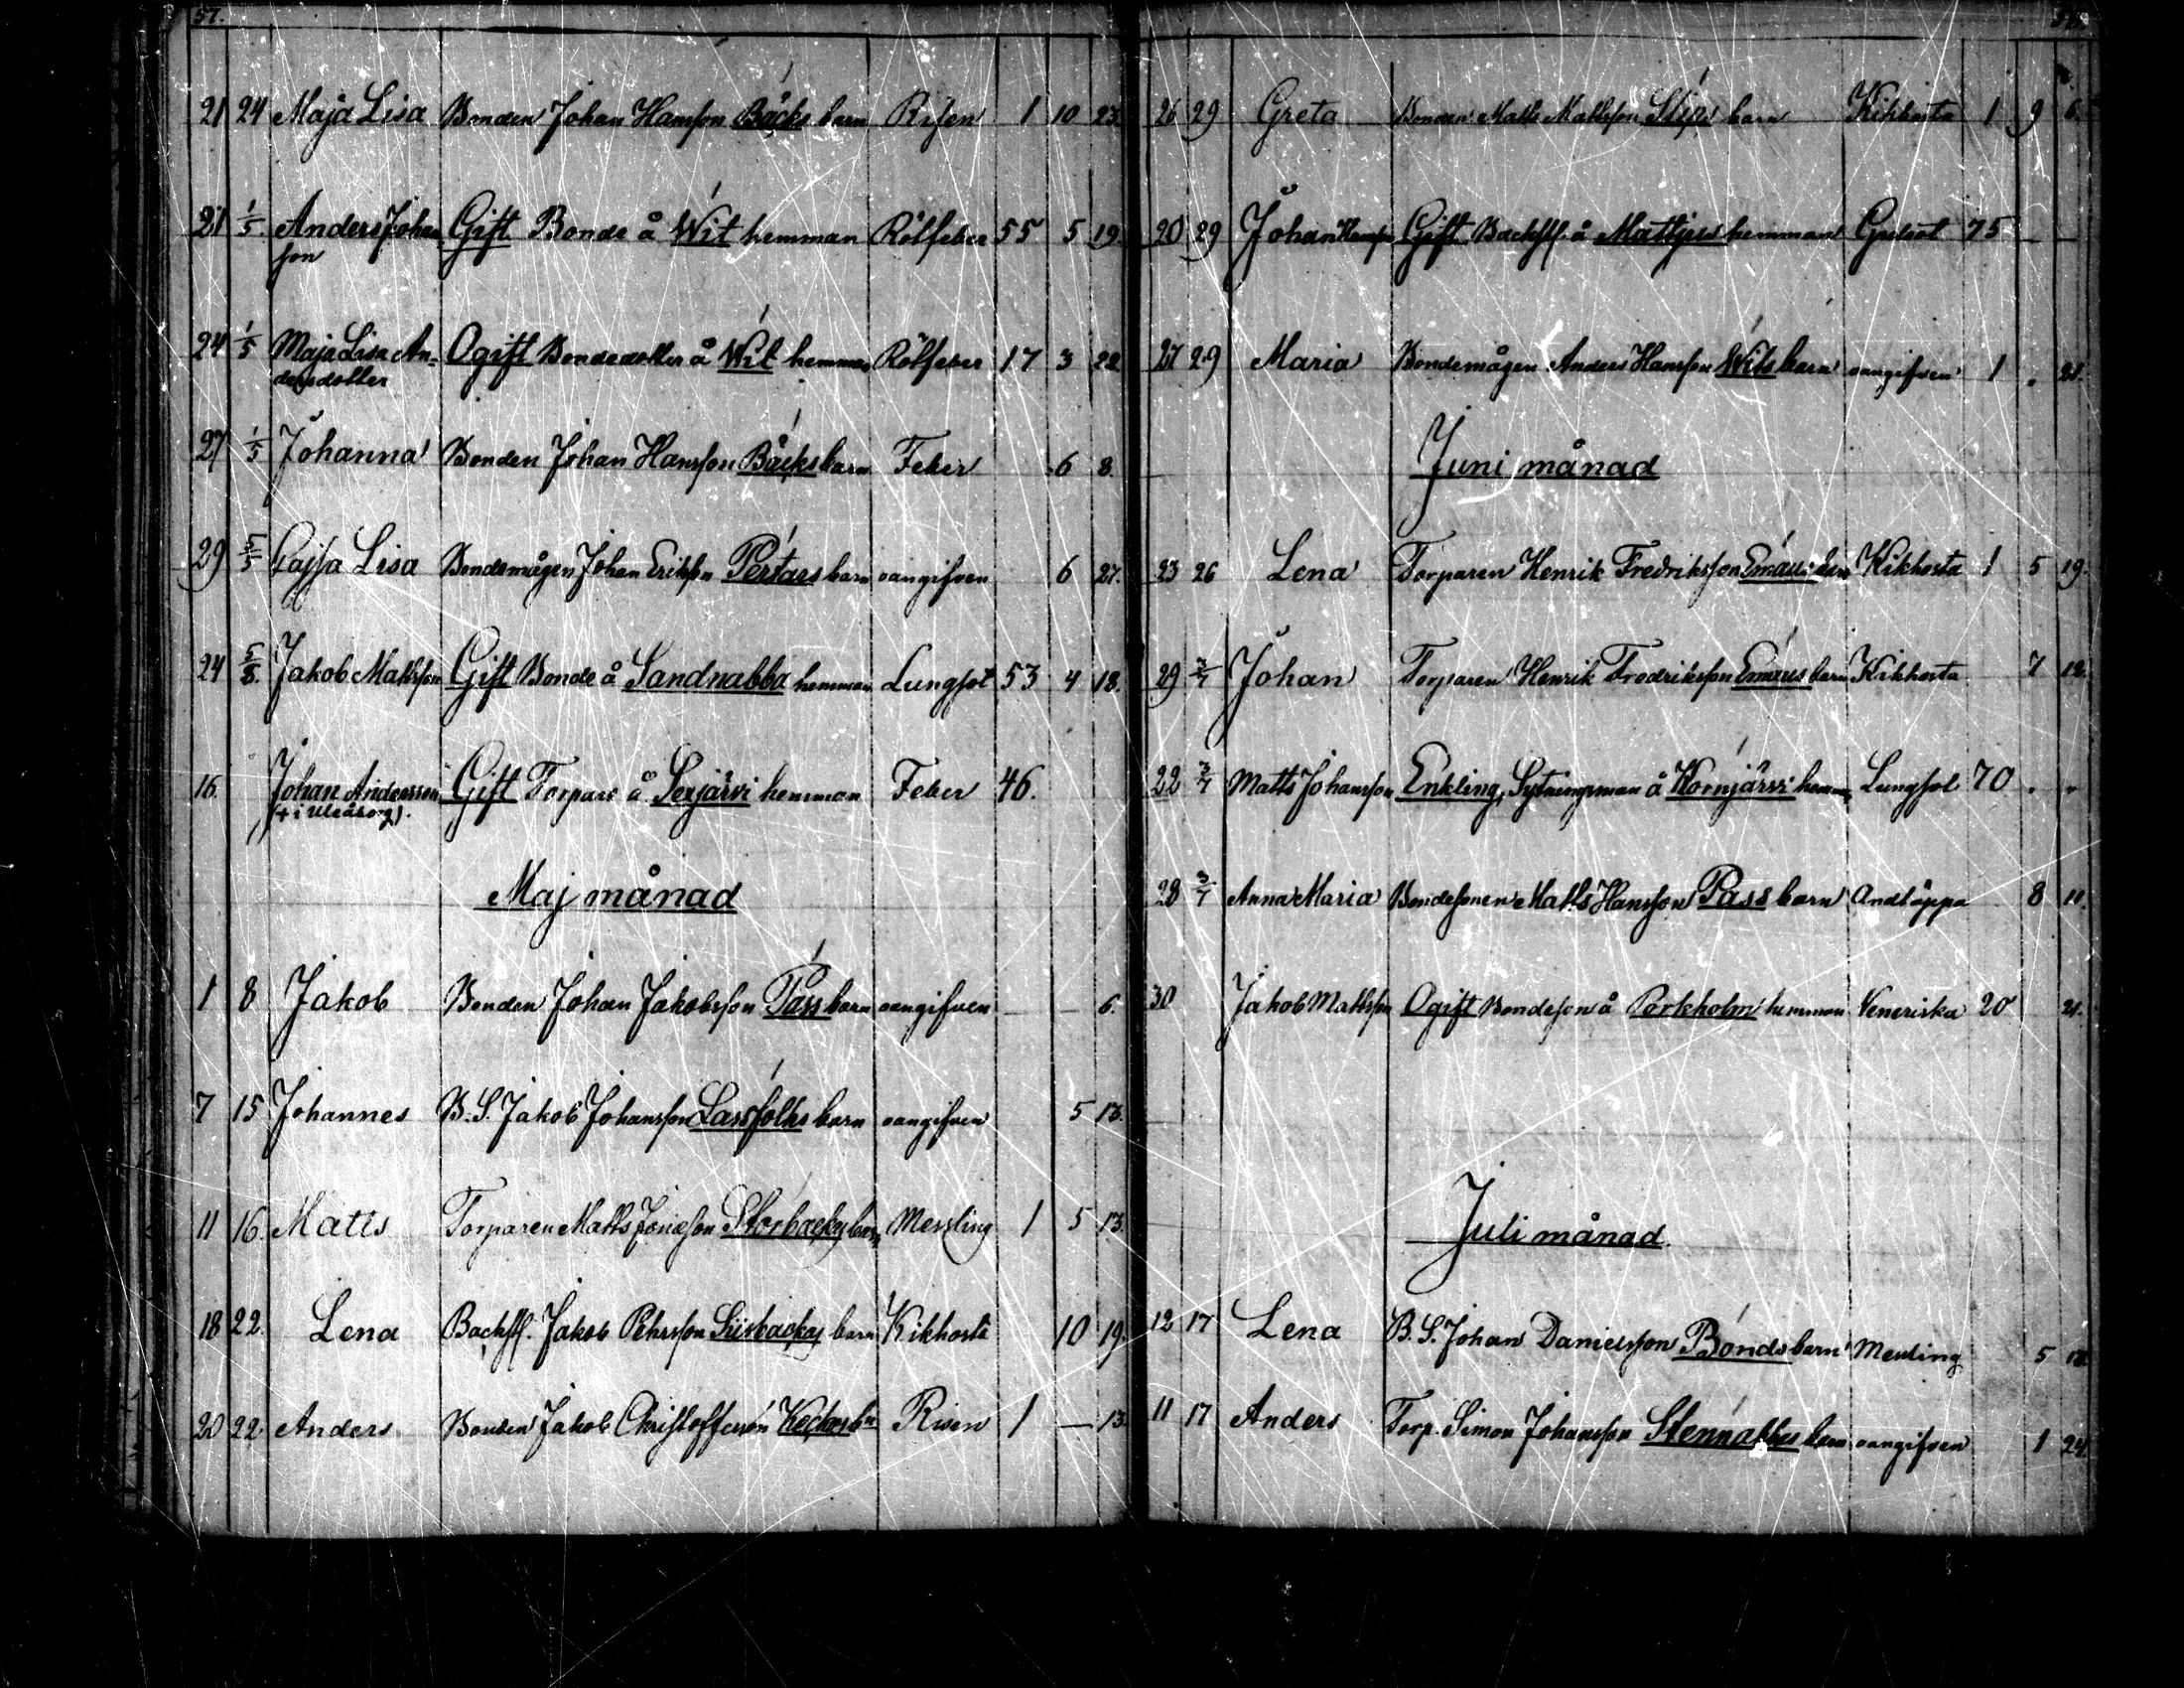 57.
21 24 Maja Lisa Bonden Johan Hansson Bäcks barn Risen 1 10 23.
21 1/5 Anders Johan Gift Bonde å Wit hemman Rötfeber 55 5 19.
son
24 1/5 Maja Lisa An- Ogift Bondedotter å Wit hemman Rötfeber 17 3 22
dersdotter
27 1/5 Johanna Bonden Johan Hansson Bäcks barn Feber 6 8.
29 5/5 Cajsa Lisa Bondemågen Johan Eriksson Pertars barn oangifven 6 27.
24 5/5. Jakob Mattsson Gift Bonde å Sandnabba hemman Lungsot 53 4 18.
16. Johan Andersson Gift Torpare å Serjärvi hemman Feber 46.
(+ i Uleåborg).
Maj månad
1 8 Jakob Bonden Johan Jakobsson Pass barn oangifven — — 6.
7 15 Johannes B. S. Jakob Johansson Lassfolks barn oangifven 5 13.
11 16. Matts Torparen Matts Jonasson Storbacka barn Messling 1 5 13.
18 22. Lena Backst. Jakob Pehrsson barn Kikhosta 10 19.
20 22. Anders Bonden Jakob Christoffersson Risen 1 — 13.
26 29 Greta Bonden Matts Mattsson Slips barn Kikhosta 1 9 6.
20 29 Johan Hansson Gift Backst. å Mattjus hemman 75 — —
27 29 Maria Bondemågen Anders Hansson Wits barn oangifven 1 . 21.
Juni månad
23 26 Lena Torparen Henrik Fredriksson Emaus barn Kikhosta 1 5 19.
29 3/7 Johan Torparen Henrik Fredriksson Emaus barn Kikhosta 7 12.
22 3/7 Matts Johansson Enkling, Sytningsman å Kornjärvi hemman Lungsot 70 . .
28 3/7 Anna Maria Bondesonen Matts Hansson Pass barn Andtäppa 8 11.
30 Jakob Mattsson Ogift Bondeson å Porkholm hemman Veneriska 20 21.
Juli månad
12 17 Lena B. S. Johan Danielsson Bonds barn Mesling 5 18
11 17 Anders Torp. Simon Johansson Stennabbas barn oangifven 1 24.